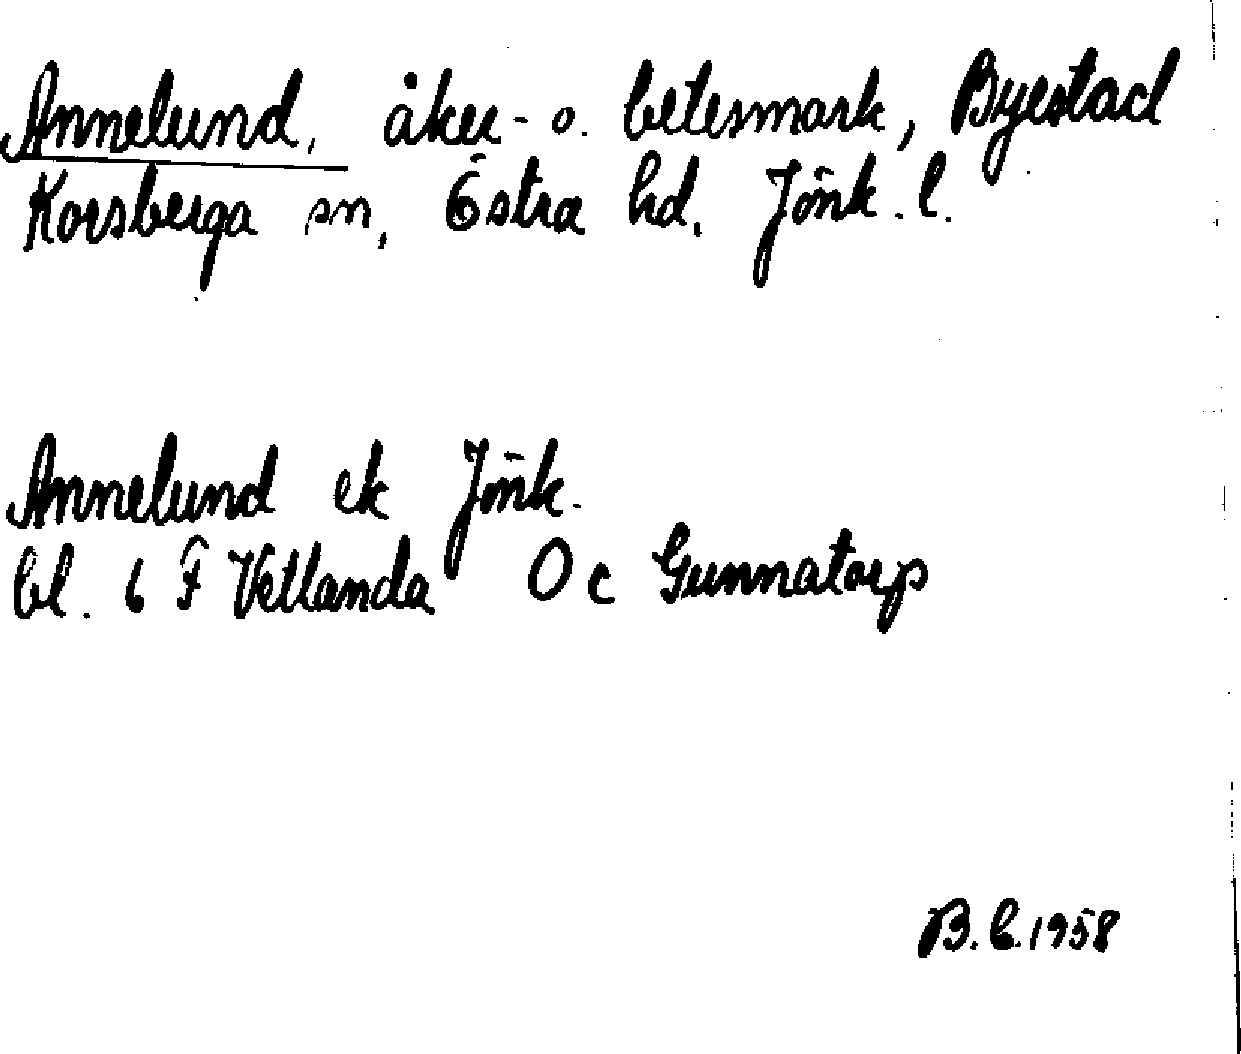 Annelund, åker- o. betesmark, Byestad
Korsberga sn, Östra hd. Jönk. l.
Annelund ek Jönk.
bl. 6 F Vetlanda O c Gunnatorp
B. C. 1958